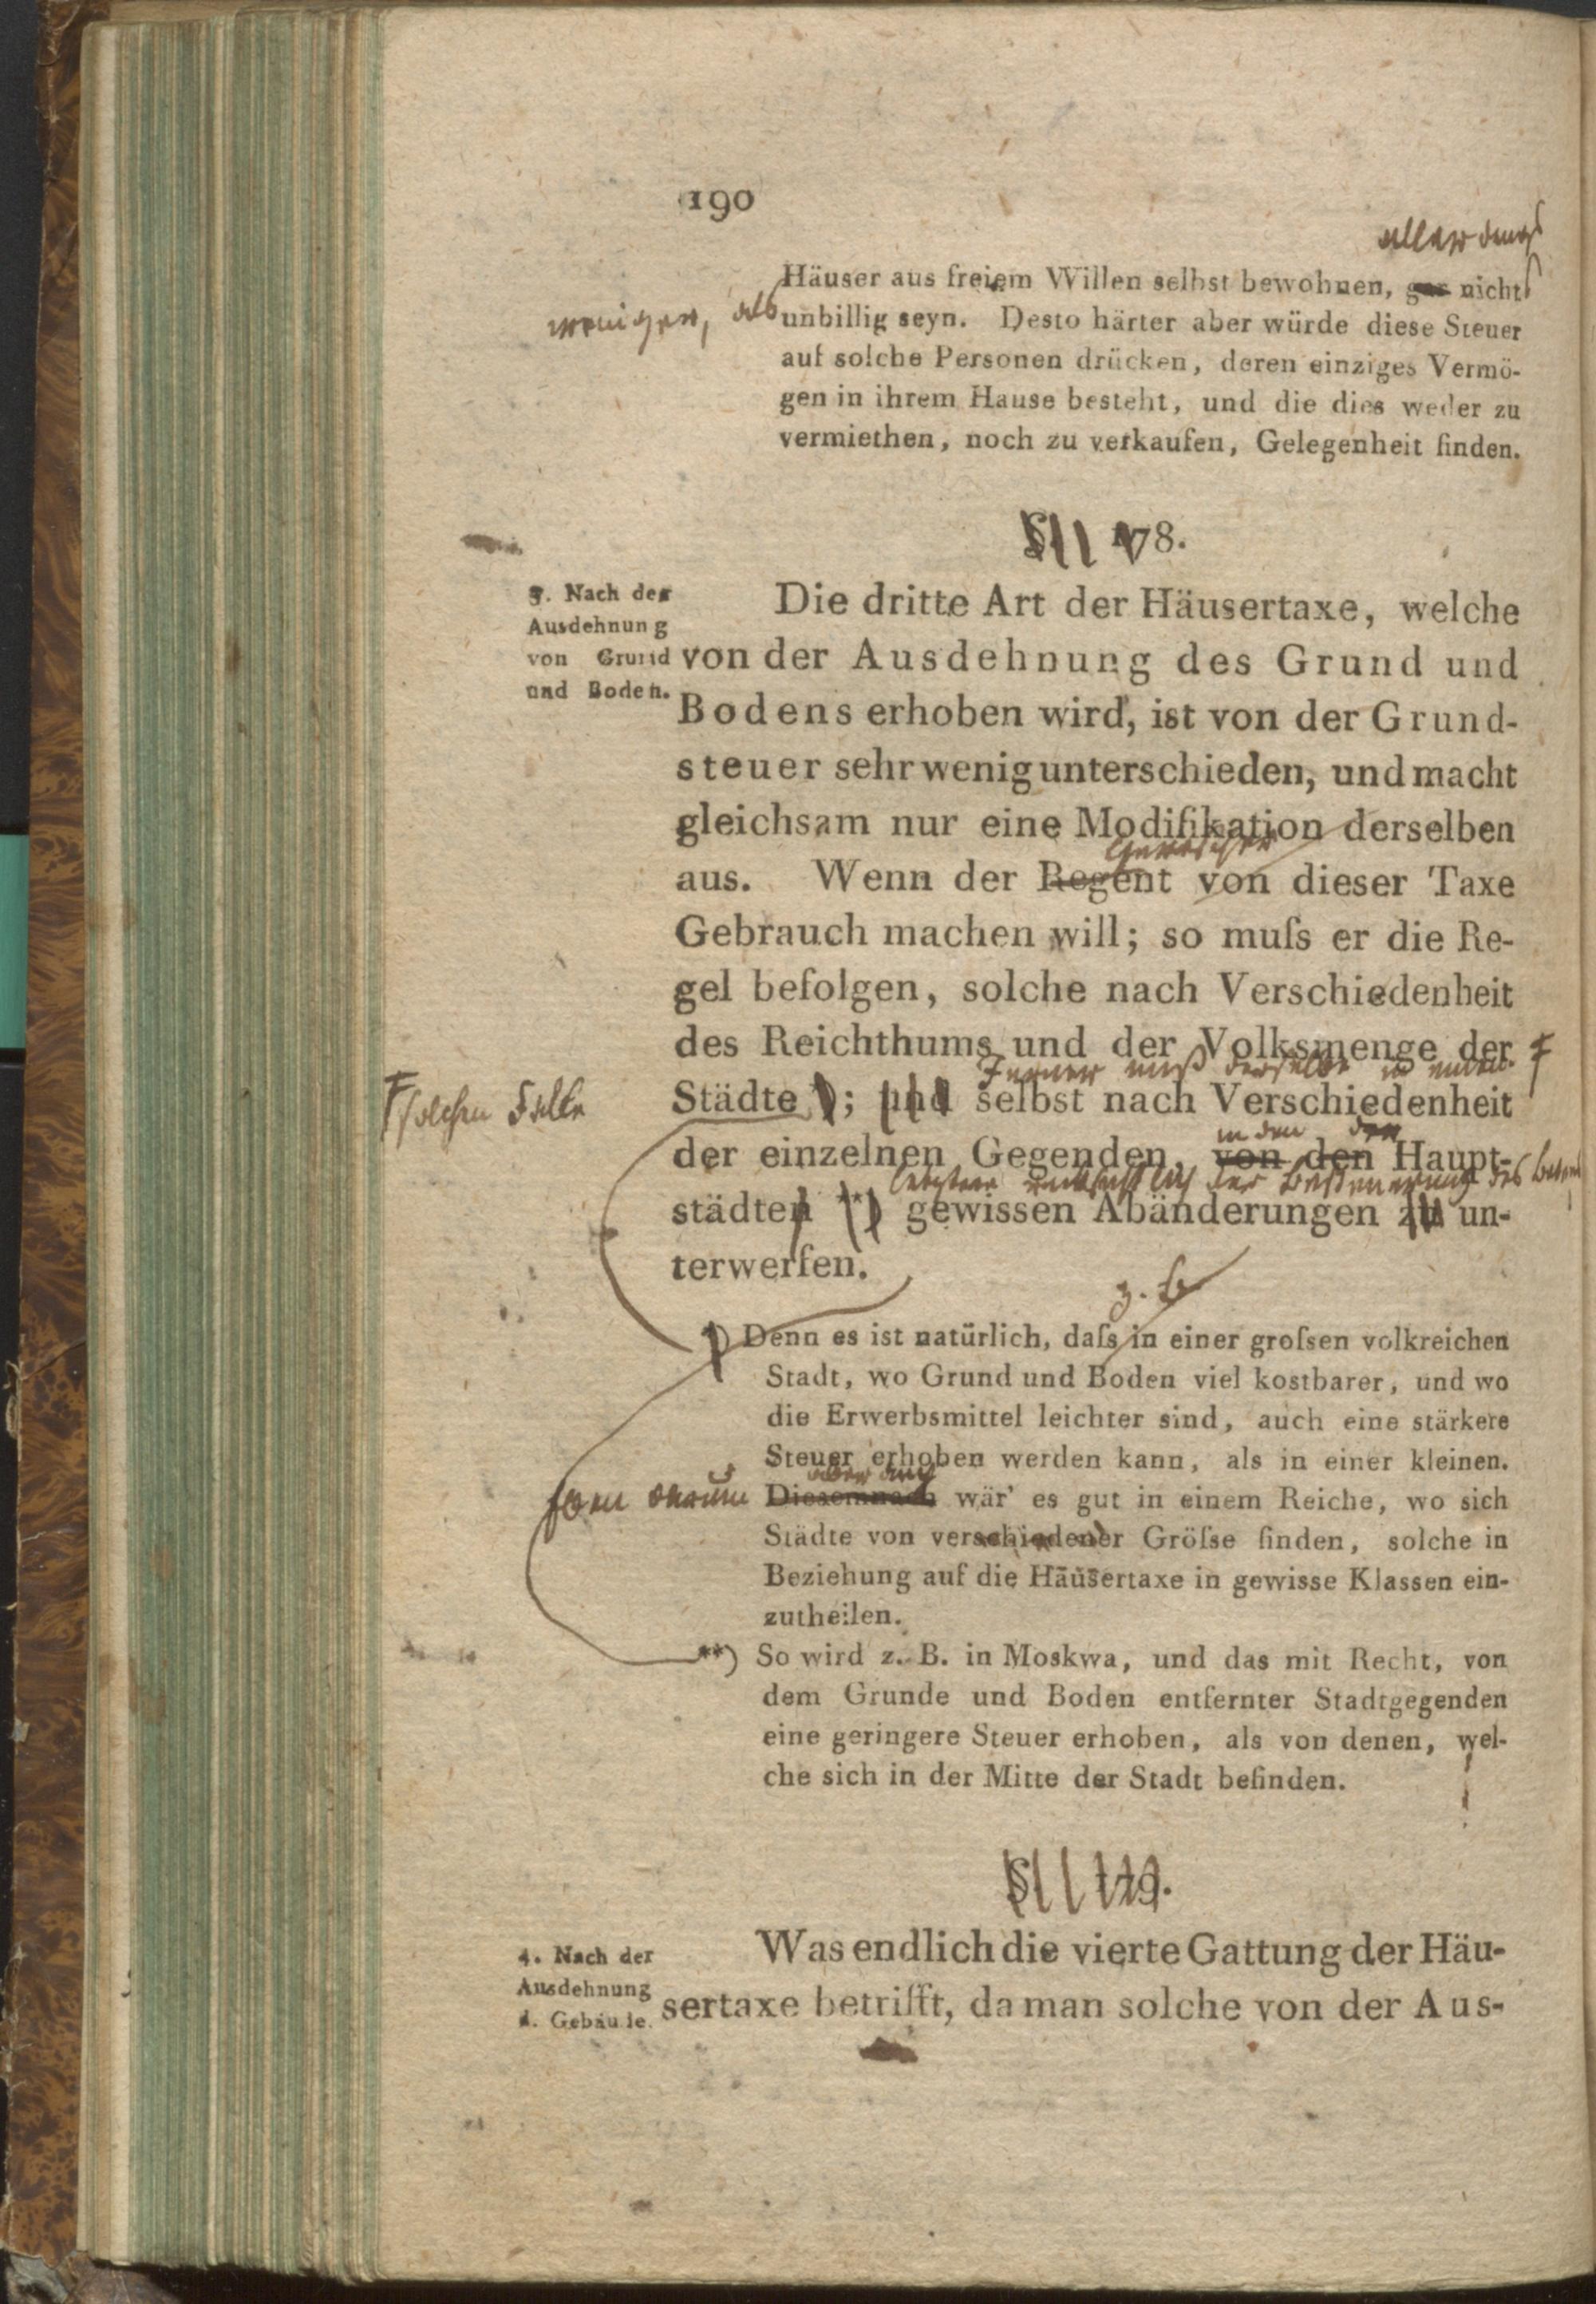 190
allerdings
Häuser aus freiem Willen selbst bewohnen, gar nicht
weniger, als
unbillig seyn. Desto härter aber würde diese Steuer
auf solche Personen drücken, deren einziges Vermö-
gen in ihrem Hause besteht, und die dies weder zu
vermiethen, noch zu verkaufen, Gelegenheit finden.
§. 178.
3. Nach der
Ausdehnung
von Grund
und Boden.
Die dritte Art der Häusertaxe, welche
von der Ausdehnung des Grund und
Bodens erhoben wird, ist von der Grund-
steuer sehr wenig unterschieden, und macht
gleichsam nur eine Modifikation derselben
aus. Wenn der Regent von dieser Taxe
Gebrauch machen will; so muſs er die Re-
gel befolgen, solche nach Verschiedenheit
des Reichthums und der Volksmenge der
Ferner muß derselbe in
solchen Falle
Städte *); und selbst nach Verschiedenheit
in den der
der einzelnen Gegenden, von den Haupt-
der Besteuerung des
städten **) gewissen Abänderungen zu un-
terwerfen.
z. B.
*) Denn es ist natürlich, daſs in einer groſsen volkreichen
Stadt, wo Grund und Boden viel kostbarer, und wo
die Erwerbsmittel leichter sind, auch eine stärkere
Steuer erhoben werden kann, als in einer kleinen.
aber auch
Diesemnach wär' es gut in einem Reiche, wo sich
Städte von verschiedener Gröſse finden, solche in
Beziehung auf die Häusertaxe in gewisse Klassen ein-
zutheilen.
**) So wird z. B. in Moskwa, und das mit Recht, von
dem Grunde und Boden entfernter Stadtgegenden
eine geringere Steuer erhoben, als von denen, wel-
che sich in der Mitte der Stadt befinden.
§. 179.
4. Nach der
Ausdehnung
d. Gebäude.
Was endlich die vierte Gattung der Häu-
sertaxe betrifft, da man solche von der Aus-